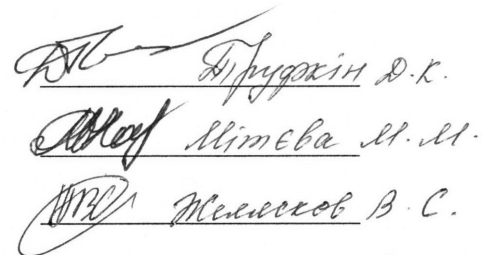 Пруфкін Д. К.
Мітєва М. М.
Желясков В. С.